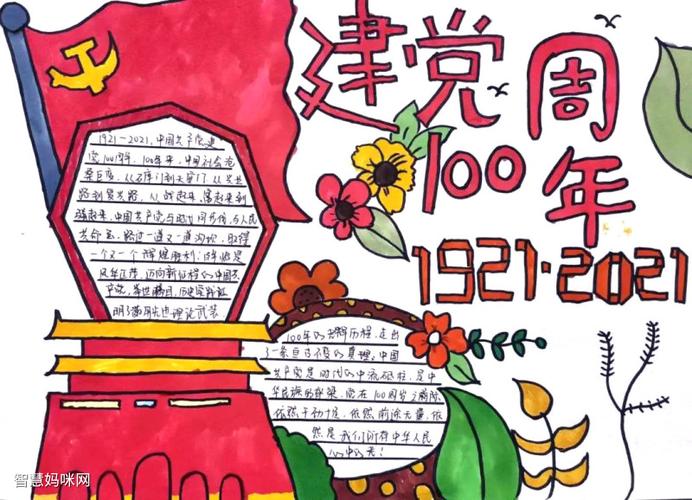 建党100周年
1921·2021
1921-2021,中国共产党建
党100周年,100年来,中国社会沧
桑巨变,从石库门到天安门,从兴业
路到复兴路,从站起来,富起来到
强起来,中国共产党与时代同步伐,与人民
共命运,跨过一道又一道沟坎,取得
一个又一个辉煌胜利:
风华正茂,迈向新征程的中国共
产党,举世瞩目,历史
明了
100年的光辉历程,走出
了一条
共产党是时代的中流砥柱,是中
华民族的脊梁,党在100周岁
依然 依然前途无量,依
然是我们所有中华人民
心中的
智慧妈咪网